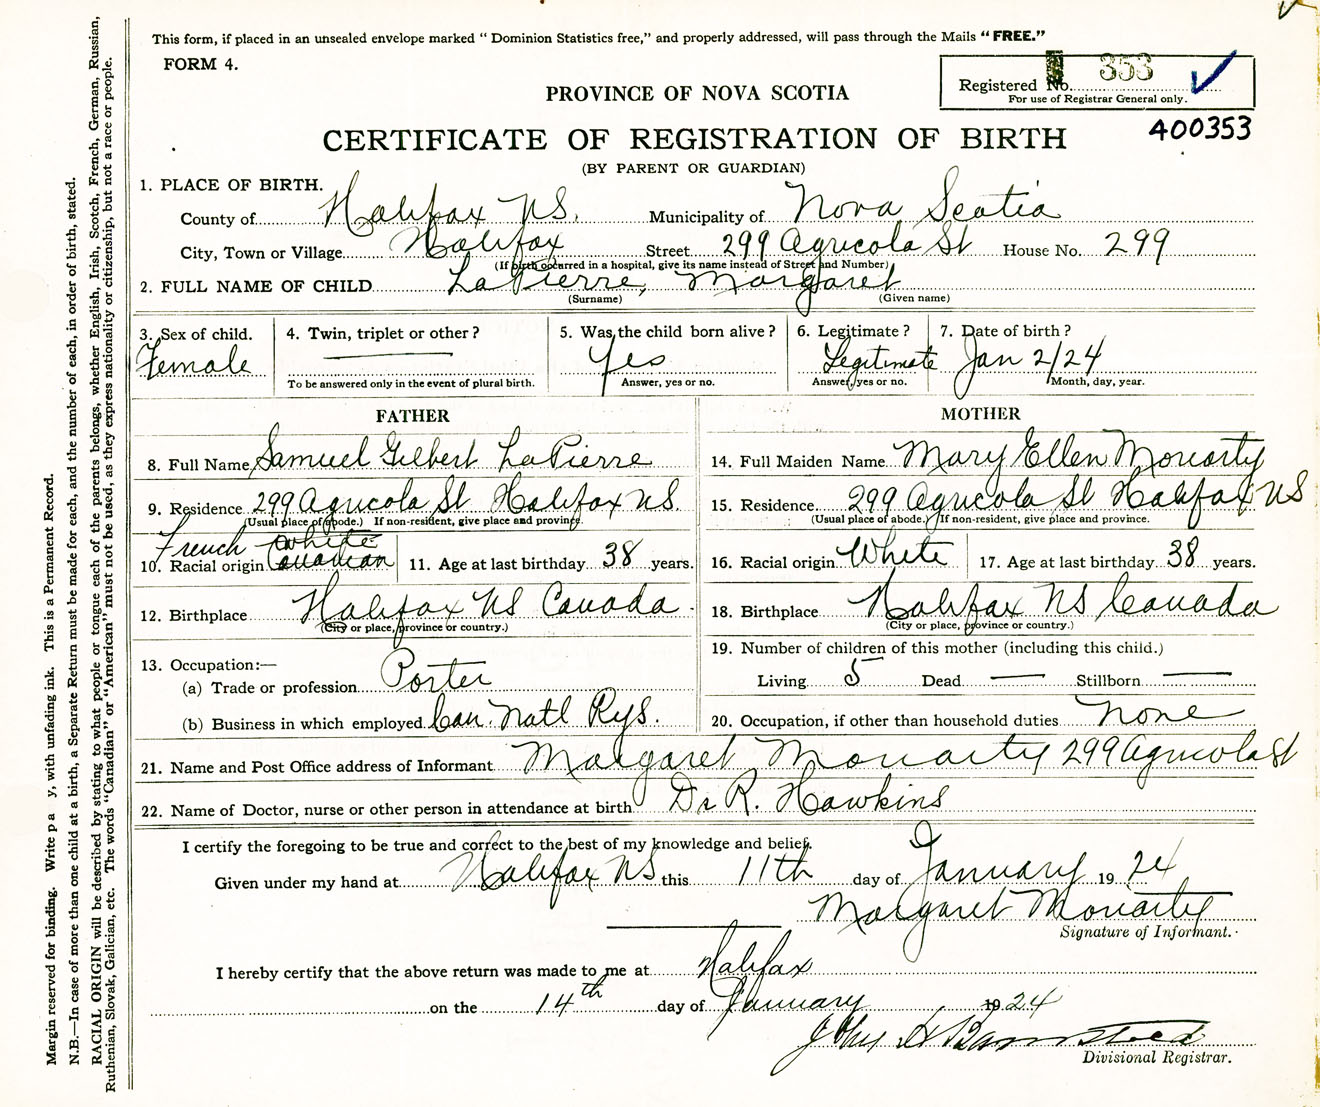 This form, if placed in an unsealed envelope marked “ Dominion Statistics free,” and properly addressed, will pass through the Mails “ FREE.”
FORM 4.
Registered No. 353
For use of Registrar General only.
PROVINCE OF NOVA SCOTIA
400353
CERTIFICATE OF REGISTRATION OF BIRTH
(BY PARENT OR GUARDIAN)
1. PLACE OF BIRTH.
County of Halifax NS. Municipality of Nova Scotia
City, Town or Village Halifax Street 299 Agricola St House No. 299
(If birth occurred in a hospital, give its name instead of Street and Number)
2. FULL NAME OF CHILD LaPierre, Margaret
(Surname) (Given name)
3. Sex of child. 4. Twin, triplet or other ? 5. Was the child born alive ? 6. Legitimate ? 7. Date of birth ?
Female Yes Legitimate Jan 2/24
To be answered only in the event of plural birth. Answer, yes or no. Answer, yes or no. Month, day, year.
FATHER MOTHER
8. Full Name Samuel Gilbert LaPierre 14. Full Maiden Name Mary Ellen Moriarty
9. Residence 299 Agricola St Halifax NS. 15. Residence 299 Agricola St Halifax NS
(Usual place of abode.) If non-resident, give place and province. (Usual place of abode.) If non-resident, give place and province.
French white
10. Racial origin Canadian 11. Age at last birthday 38 years. 16. Racial origin White 17. Age at last birthday 38 years.
12. Birthplace Halifax NS Canada 18. Birthplace Halifax NS Canada
(City or place, province or country.) (City or place, province or country.)
13. Occupation:— 19. Number of children of this mother (including this child.)
(a) Trade or profession Porter Living 5 Dead — Stillborn —
(b) Business in which employed Can. Natl Rys. 20. Occupation, if other than household duties none
21. Name and Post Office address of Informant Margaret Moriarty 299 Agricola St
22. Name of Doctor, nurse or other person in attendance at birth Dr R. Hawkins
I certify the foregoing to be true and correct to the best of my knowledge and belief.
Given under my hand at Halifax NS this 11th day of January 1924
Margaret Moriarty
Signature of Informant.
I hereby certify that the above return was made to me at Halifax
on the 14th day of January 1924
John
Divisional Registrar.
Margin reserved for binding. Write with unfading ink. This is a Permanent Record.
N.B.—In case of more than one child at a birth, a Separate Return must be made for each, and the number of each, in order of birth, stated.
RACIAL ORIGIN will be described by stating to what people or tongue each of the parents belongs, whether English, Irish, Scotch, French, German, Russian,
Ruthenian, Slovak, Galician, etc. The words “Canadian” or “American” must not be used, as they express nationality or citizenship, but not a race or people.